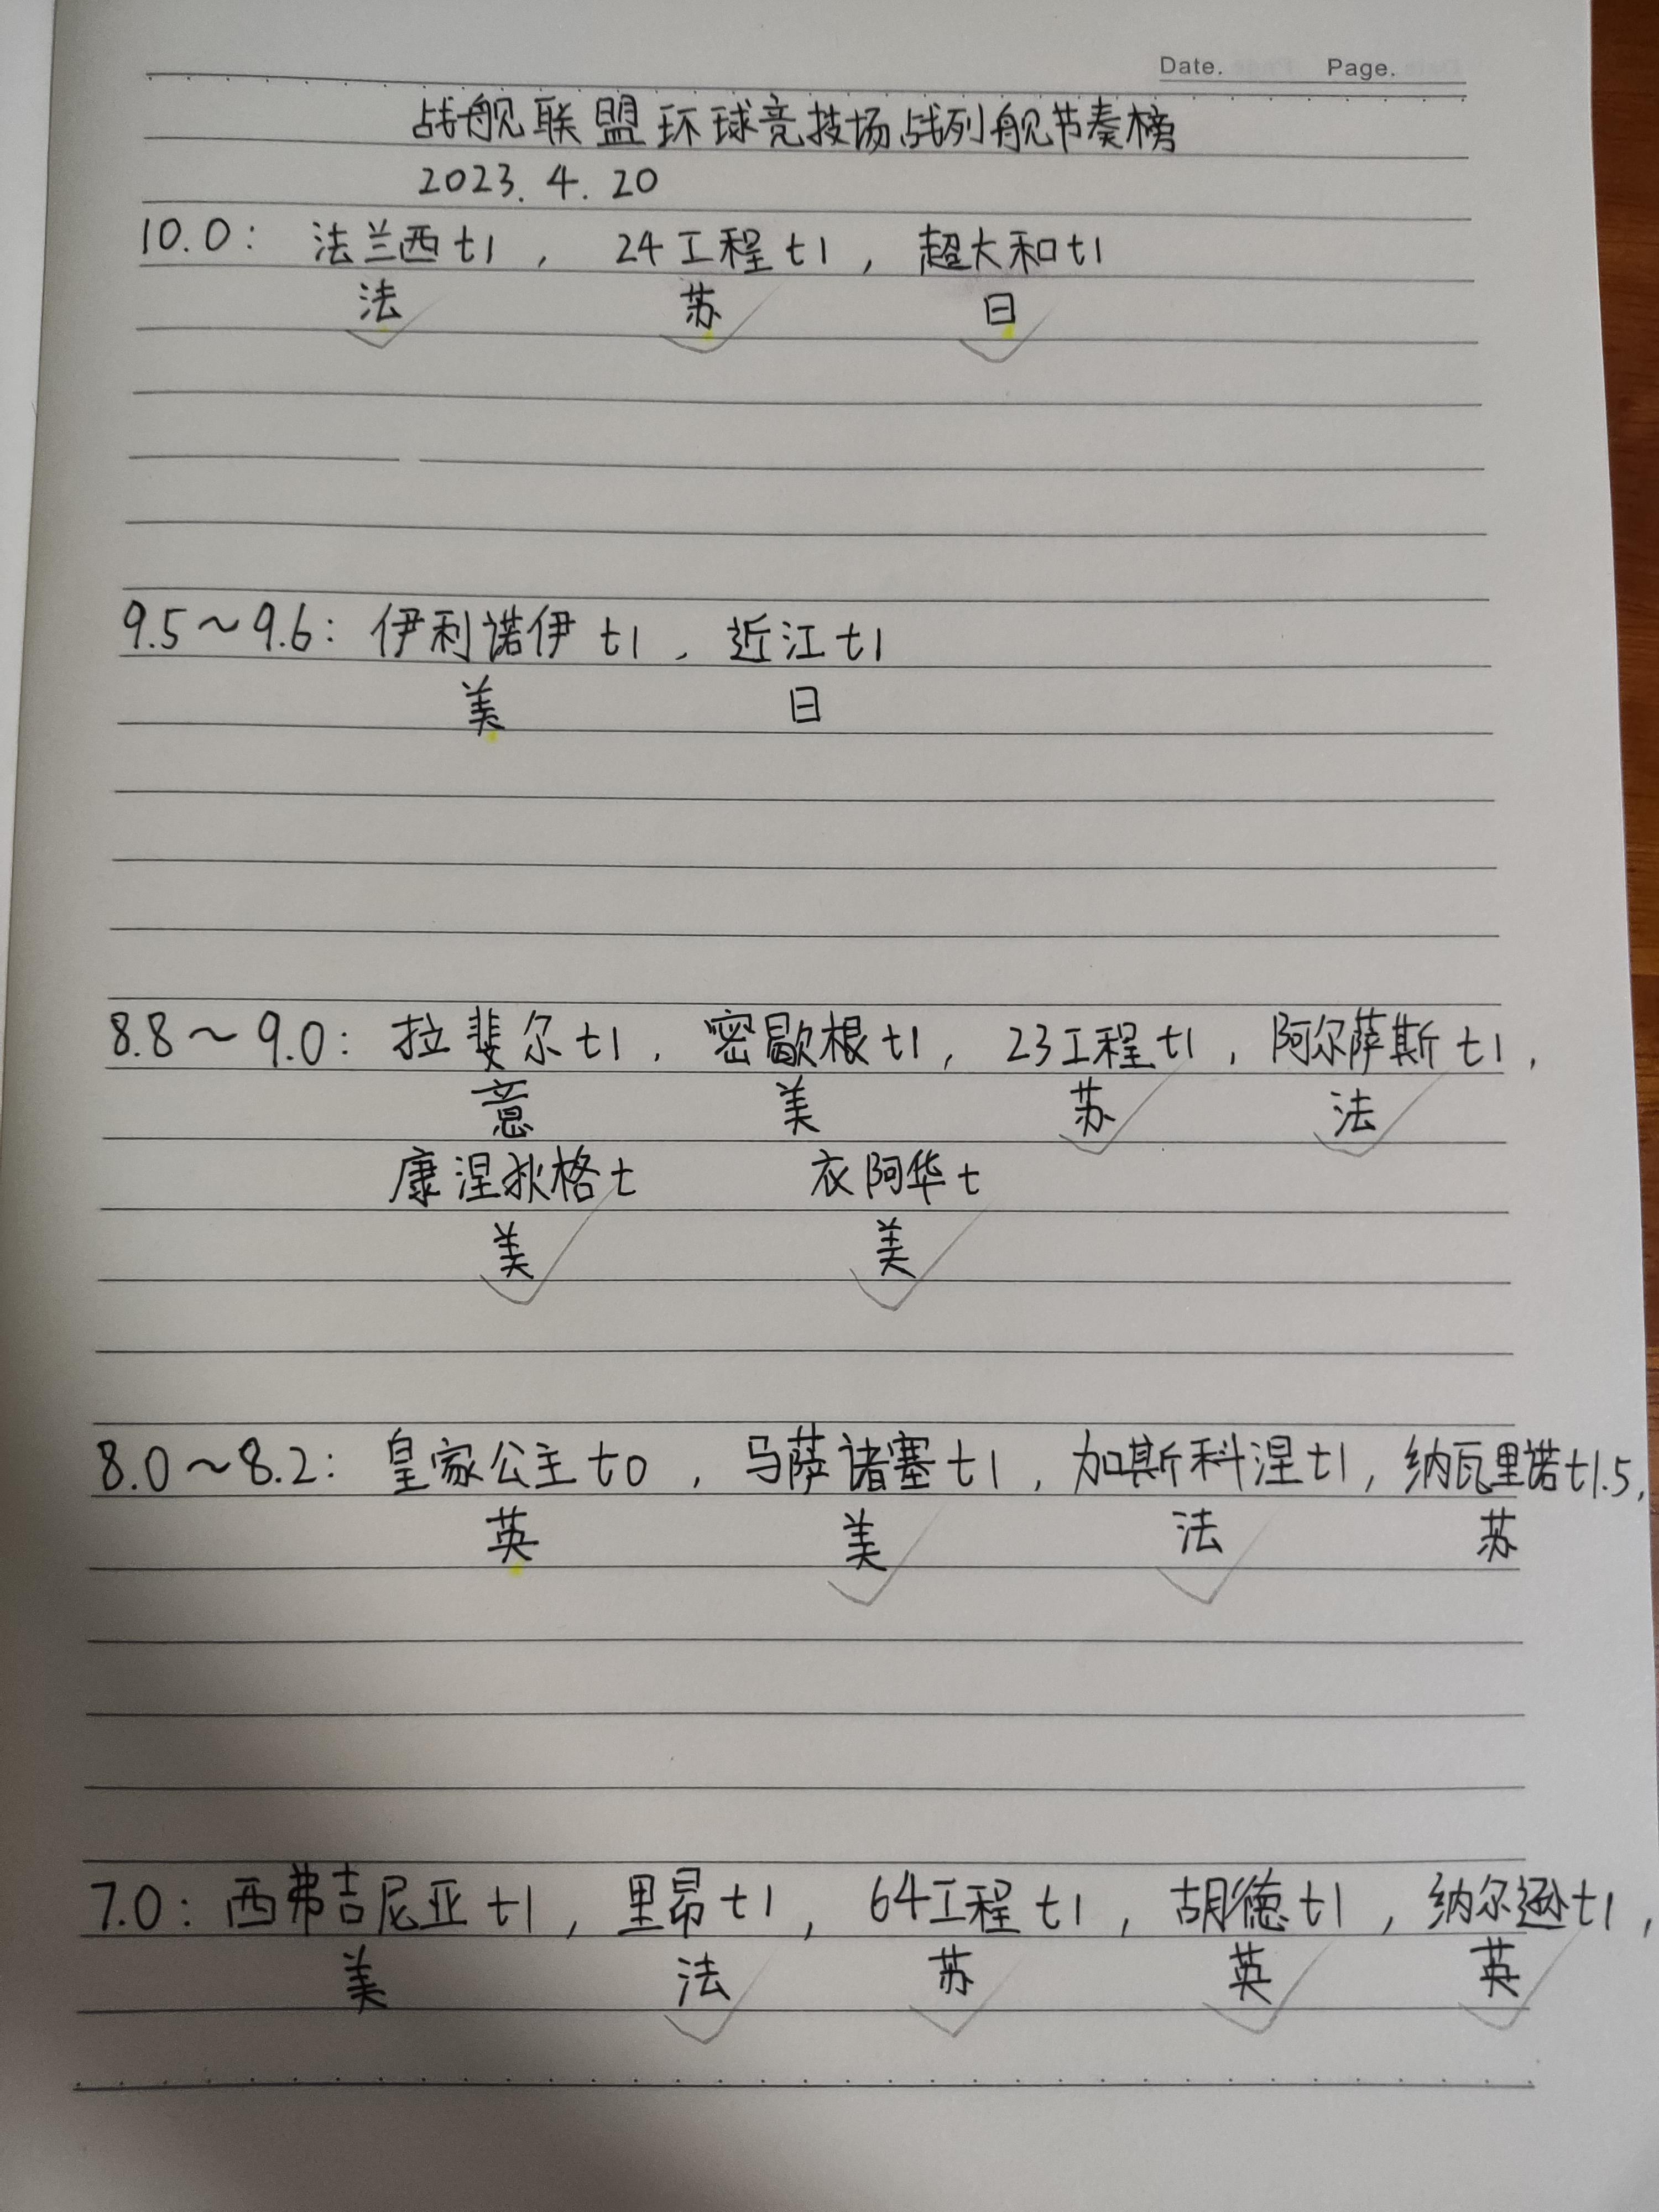 Date. Page.
战舰联盟环球竞技场战列舰节奏榜
2023.4.20
10.0: 法兰西t1, 24工程t1, 超大和t1
法 苏 日
9.5~9.6: 伊利诺伊t1, 近江t1
美 日
8.8~9.0: 拉斐尔t1, 密歇根t1, 23工程t1, 阿尔萨斯t1,
意 美 苏 法
康涅狄格t 衣阿华t
美 美
8.0~8.2: 皇家公主t0, 马萨诸塞t1, 加斯科涅t1, 纳瓦里诺t1.5,
英 美 法 苏
7.0: 西弗吉尼亚t1, 里昂t1, 64工程t1, 胡德t1, 纳尔逊t1,
美 法 苏 英 英